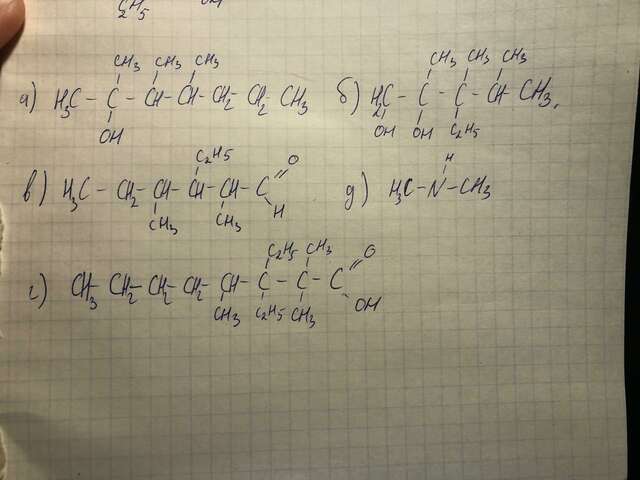 C2H5
CH3 CH3 CH3
а) H3C - C - CH - CH - CH2 - CH2 - CH3
OH
CH3 CH3 CH3
б) H2C - C - C - CH - CH3,
OH OH C2H5
C2H5 O
в) H3C - CH2 - CH - CH - CH - C
CH3 CH3 H
H
д) H3C - N - CH3
C2H5 CH3 O
г) CH3 - CH2 - CH2 - CH2 - CH - C - C - C
CH3 C2H5 CH3 OH